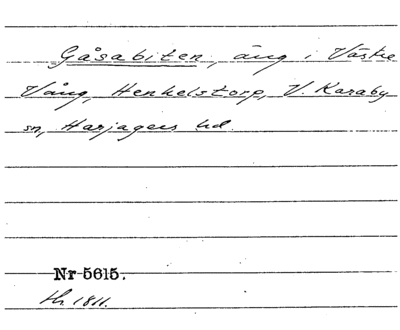 Gåsabiten, äng i Västra
Vång, Henkelstorp, V. Karaby
sn, Harjagers hd.
Nr 5615.
hr 1811.